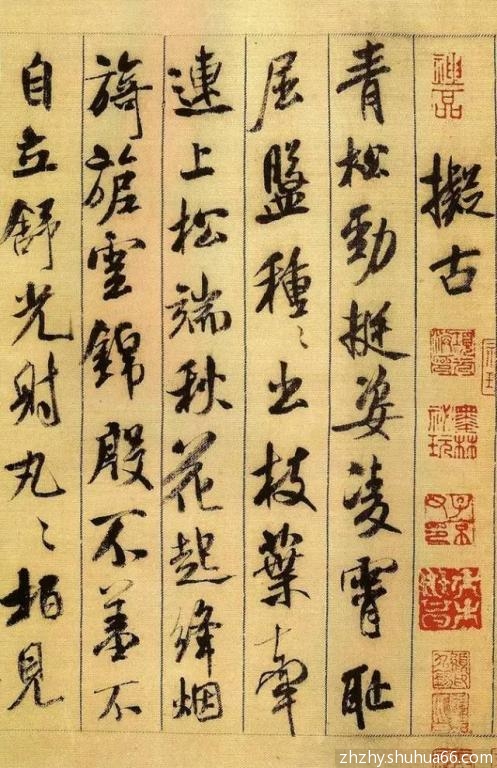 擬古
青松勁挺姿凌霄恥
屈盤種〻出枝葉牽
連上松端秋花起絳烟
旖旎雲錦殷不羞不
自立舒光射丸〻柏見
墨林秘玩
子京父印
zhzhy.shuhua66.com